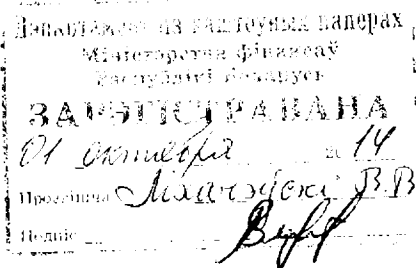 Дэпартамент па каштоўных паперах
Міністэрства фінансаў
Рэспублікі Беларусь
ЗАРЭГІСТРАВАНА
01 октября 2014
Прозвішча Міхалёўскі В.В
Подпіс